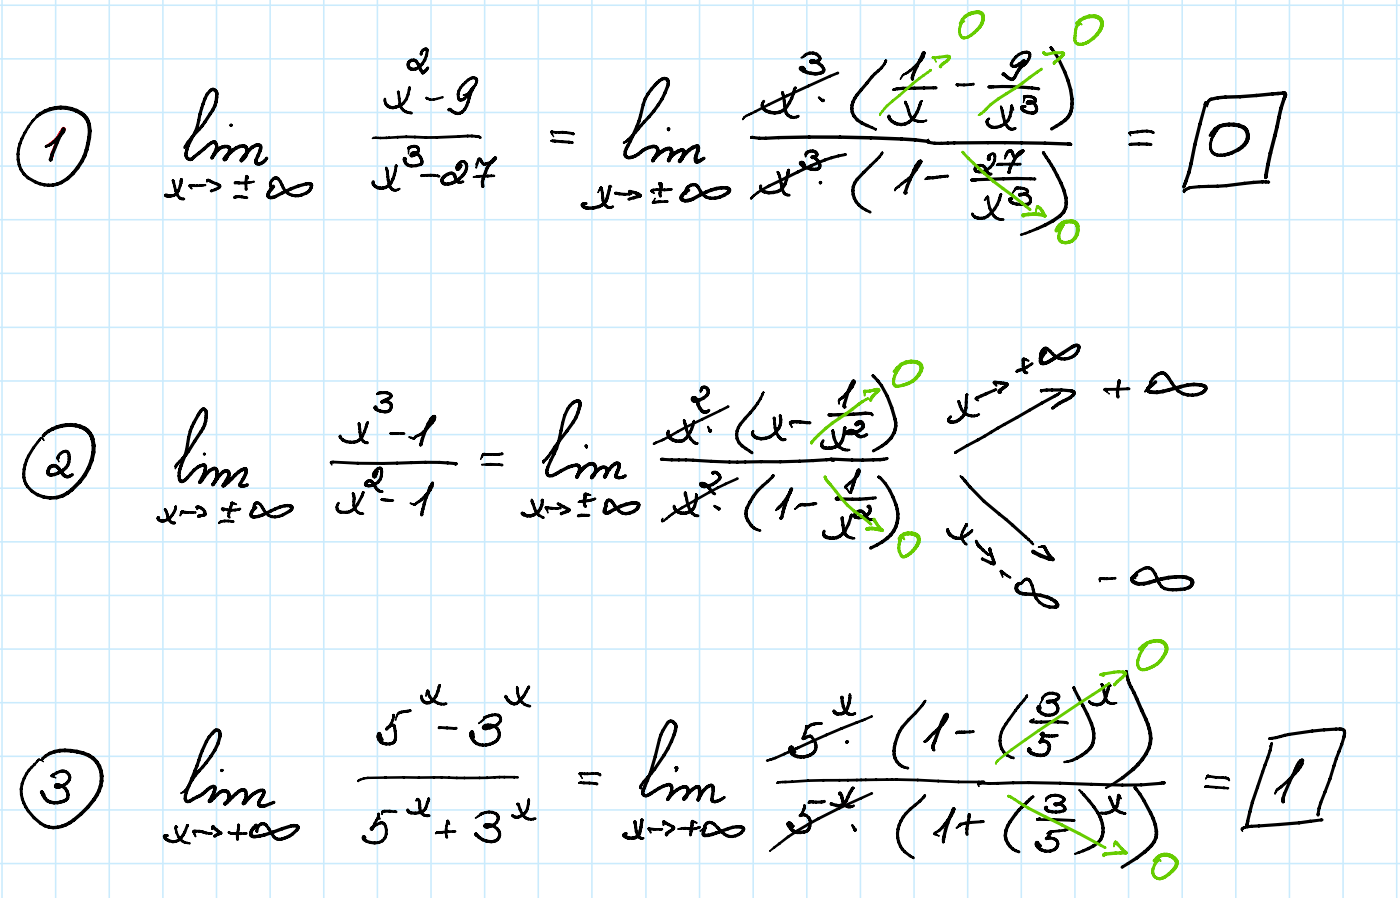 ① lim x→±∞ (x² - 9)/(x³ - 27) = lim x→±∞ (x³ · (1/x - 9/x³))/(x³ · (1 - 27/x³)) = 0 0 0 0
② lim x→±∞ (x³ - 1)/(x² - 1) = lim x→±∞ (x² · (x - 1/x²))/(x² · (1 - 1/x²)) 0 0 x→+∞ +∞ x→-∞ -∞
③ lim x→+∞ (5ˣ - 3ˣ)/(5ˣ + 3ˣ) = lim x→+∞ (5ˣ · (1 - (3/5)ˣ))/(5ˣ · (1 + (3/5)ˣ)) = 1 0 0